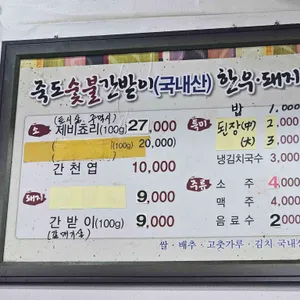 죽도숯불간받이(국내산) 한우·돼지
밥 1,000
소 제비츄리(100g) 27,000
(100g) 20,000
간천엽 10,000
돼지 9,000
간받이(100g) 9,000
특미 된장(中) 2,000
(大) 3,000
냉김치국수 3,000
주류 소주 4,000
맥주 4,000
음료수 2,000
쌀·배추·고춧가루·김치 국내산